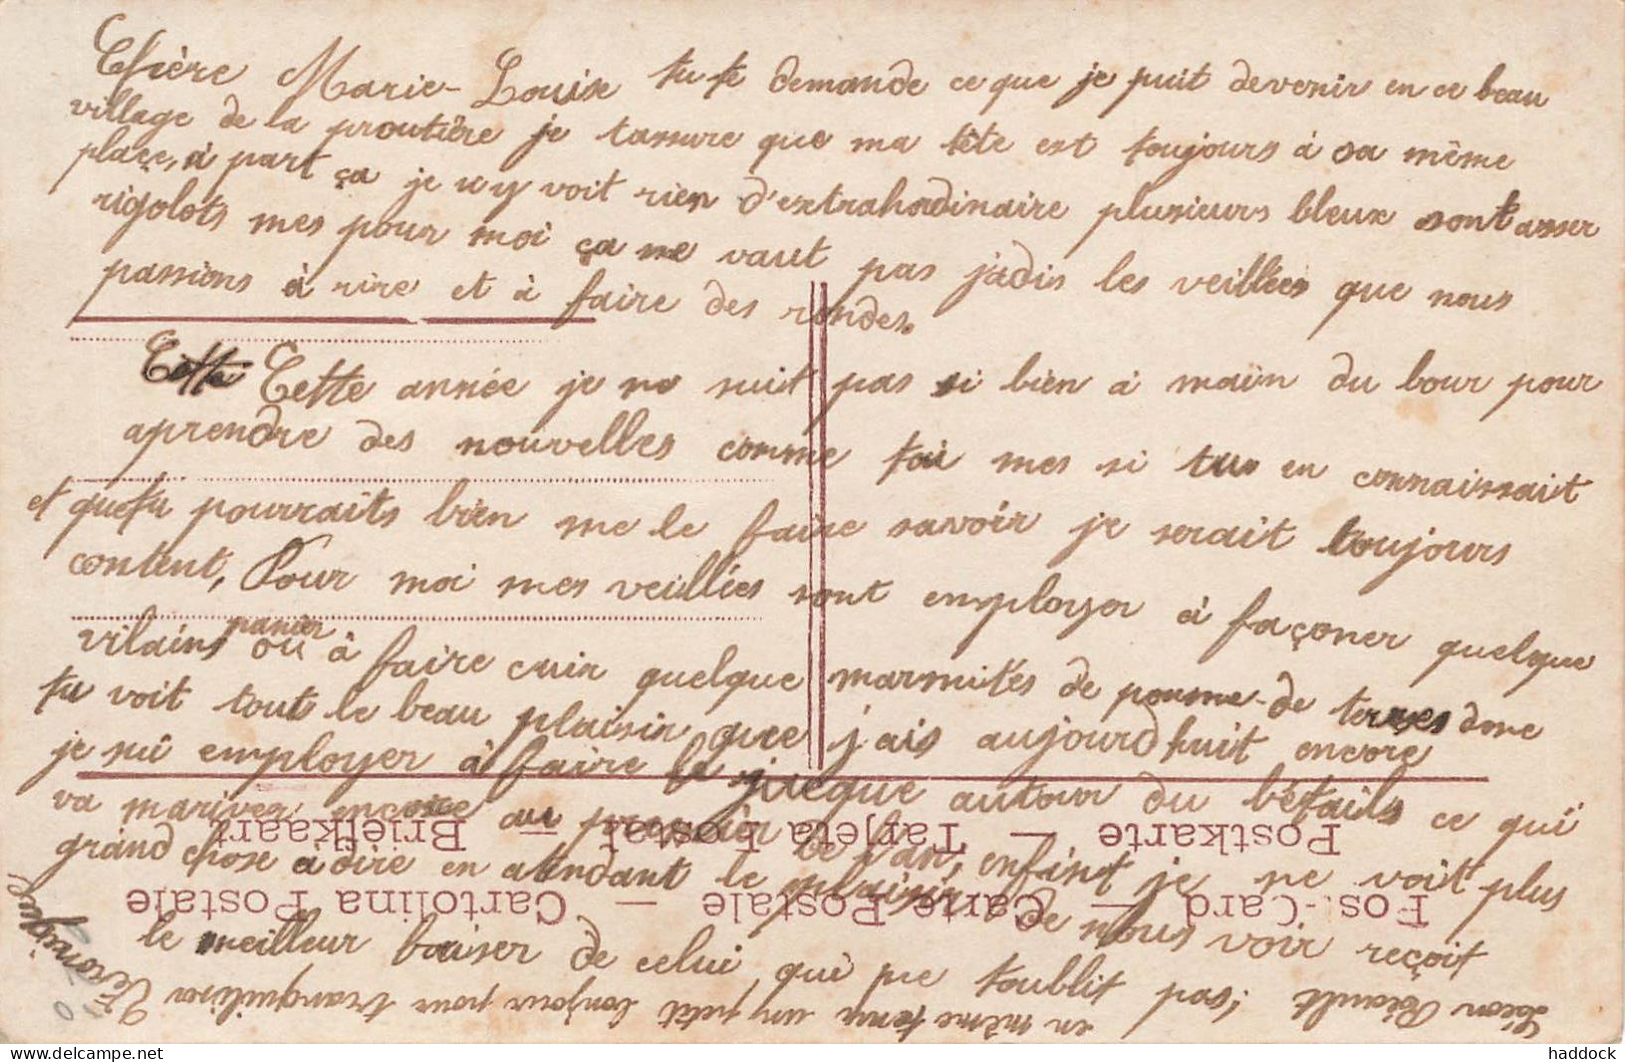 Chère Marie-Louise tu te demande ce que je puit devenir en ce beau
village de la proutière je tassure que ma tête est toujours à sa même
place, à part ça je n'y voit rien d'extrahordinaire plusieurs bleux sont asser
rigolots mes pour moi ça ne vaut pas jadis les veillées que nous
passions à rire et à faire des rondes.
Cette Cette année je ne suit pas si bien à main du bour pour
aprendre des nouvelles comme toi mes si tu en connaissait
et que tu pourraits bien me le faire savoir je serait toujours
content, Pour moi mes veillées sont employer à façoner quelque
vilains panier ou à faire cuir quelque marmités de pomme-de terres donc
tu voit tout le beau plaisir que j'ais aujourdhuit encore
je sui employer à faire le jueque autour du bétails ce qui
va mariver encore au premier de l'an, enfint je ne voit plus
grand chose à dire en atendant le plaisir de nous voir reçoit
le meilleur baiser de celui qui ne toublit pas;
Léon Récault
en même temp un petit bonjour pour tranquiliser Véronique
Postkarte — Tarjeta Postal — Briefkaart
Pos.-Card — Carte Postale — Cartolina Postale
haddock